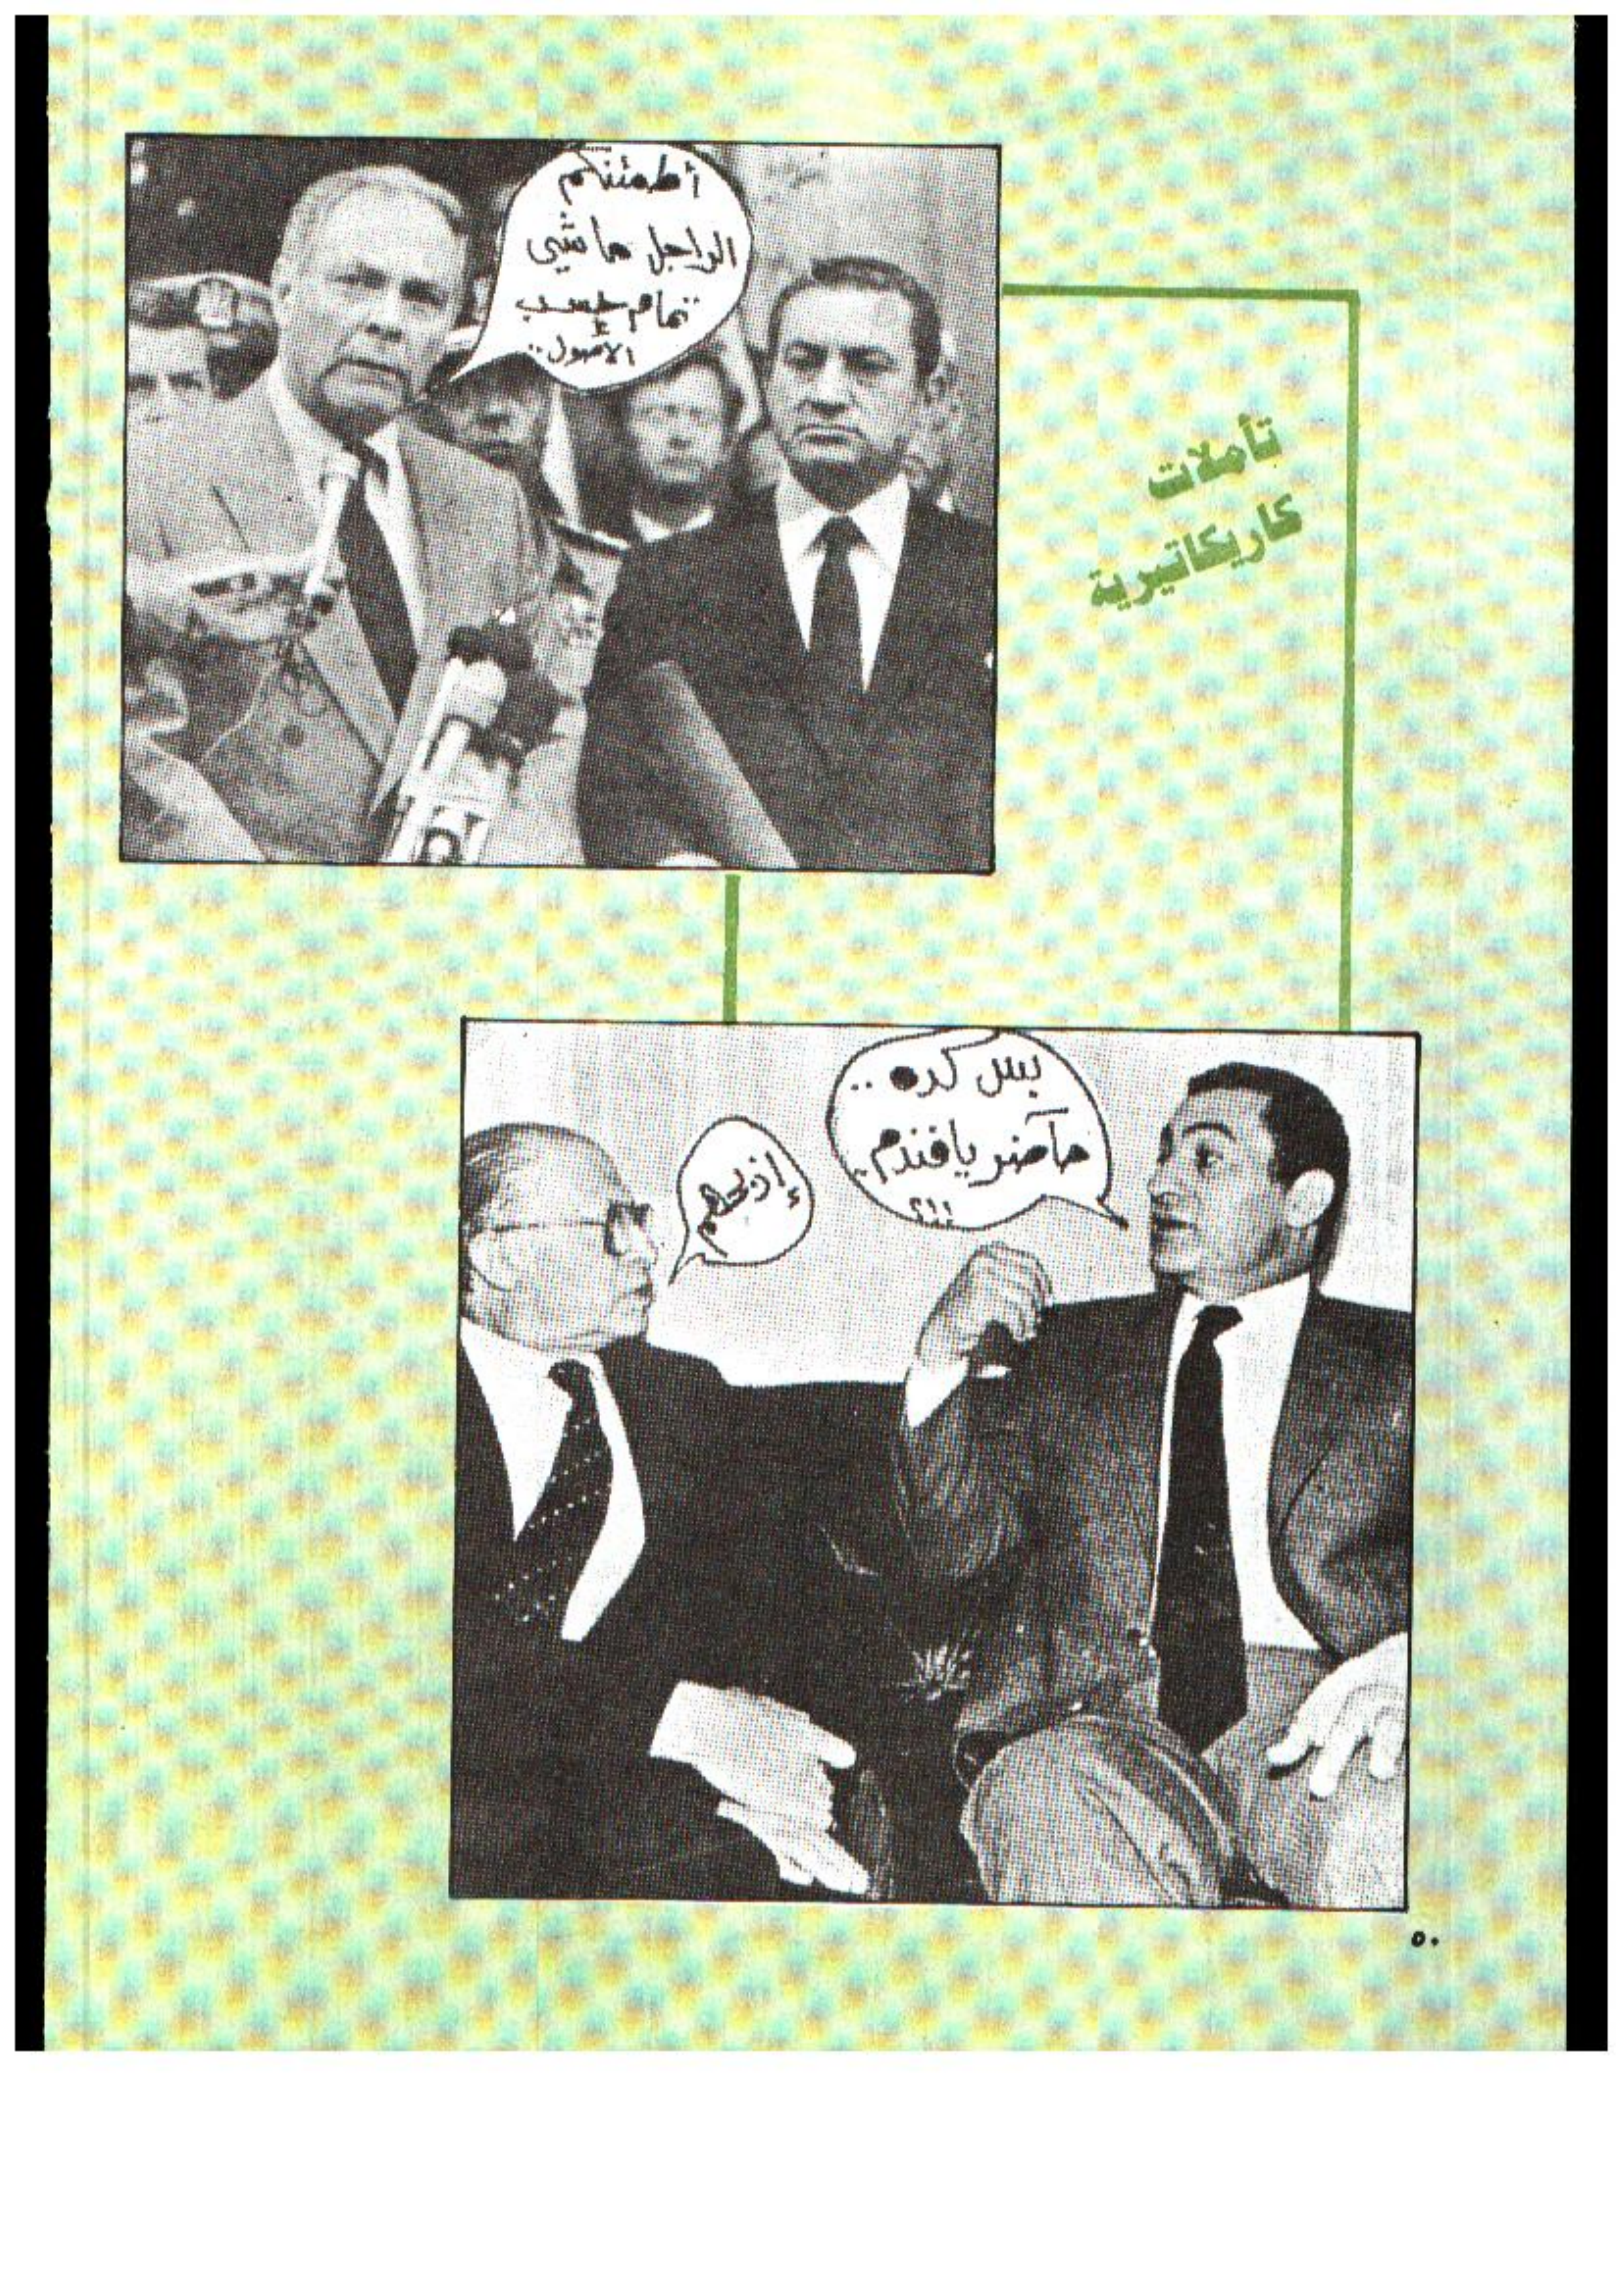 أطمئنكم
الراجل ماشي
تمام حسب
الأصول..
تأملات
كاريكاتيرية
بس كده ..
حاضر يافندم..
!!؟
إذبحهم
٥٠